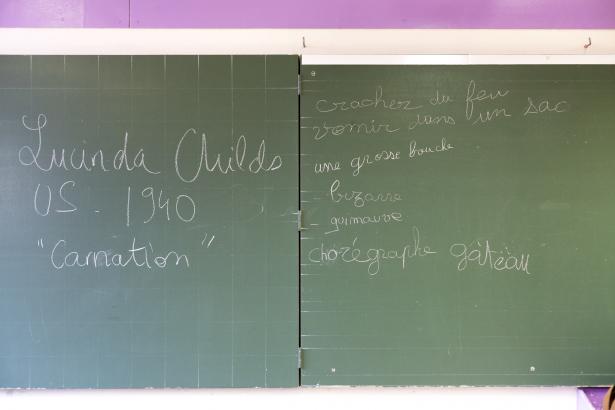 Lucinda Childs
US - 1940
"Carnation"
cracher du feu
vomir dans un sac
une grosse bouche
bizarre
guimauve
chorégraphe gâteau